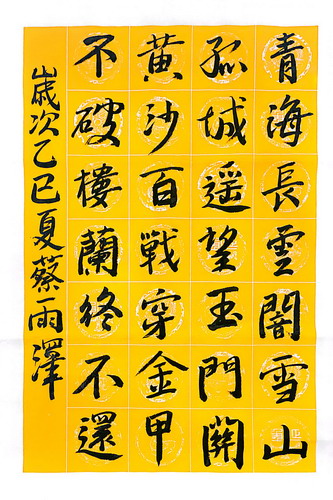 青海長雲闇雪山
孤城遥望玉門關
黄沙百戰穿金甲
不破樓蘭終不還
歲次乙巳夏蔡雨澤